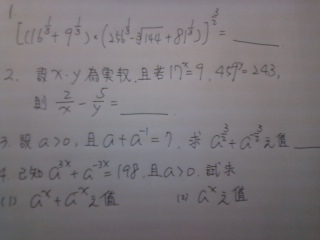 1.
[(16^{1/3} + 9^{1/3}) × (256^{1/3} - ∛144 + 81^{1/3})]^{3/2} = ____
2. 設 x、y 為實數, 且若 17^x = 9, 459^y = 243,
則 2/x - 5/y = ____
3. 設 a>0, 且 a + a^{-1} = 7, 求 a^{3/2} + a^{-3/2} 之值 ____
4. 已知 a^{3x} + a^{-3x} = 198, 且 a>0. 試求
(1) a^x + a^{-x} 之值 (2) a^x 之值